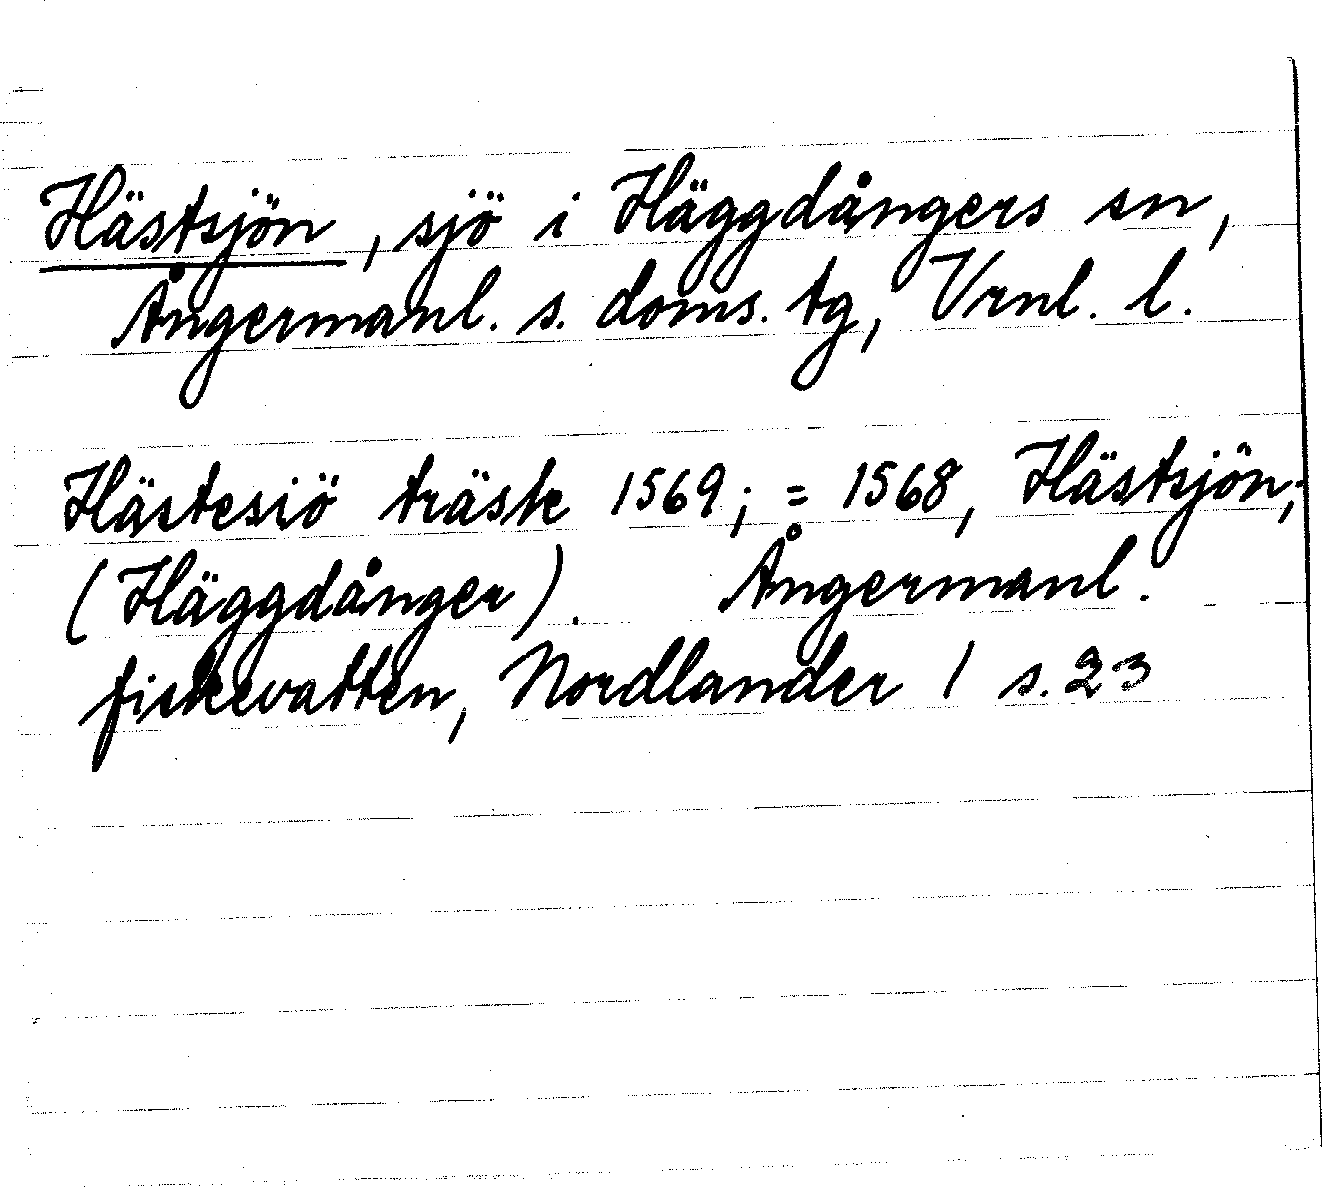 Hästsjön, sjö i Häggdångers sn,
Ångermanl. s. doms. tg, Vrnl. l.
Hästesiö träsk 1569; = 1568, Hästsjön;
(Häggdånger). Ångermanl.
fiskevatten, Nordlander 1 s. 23